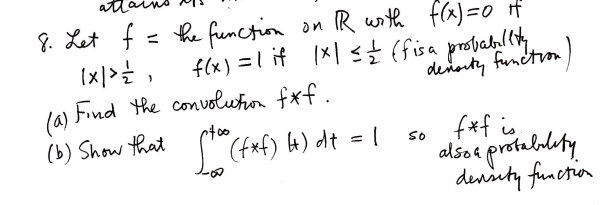 attains its
8. Let f = the function on ℝ with f(x)=0 if
|x|>½, f(x)=1 if |x| ≤ ½ (f is a probability density function)
(a) Find the convolution f*f.
(b) Show that ∫_{-∞}^{+∞} (f*f)(t) dt = 1 so f*f is also a probability density function